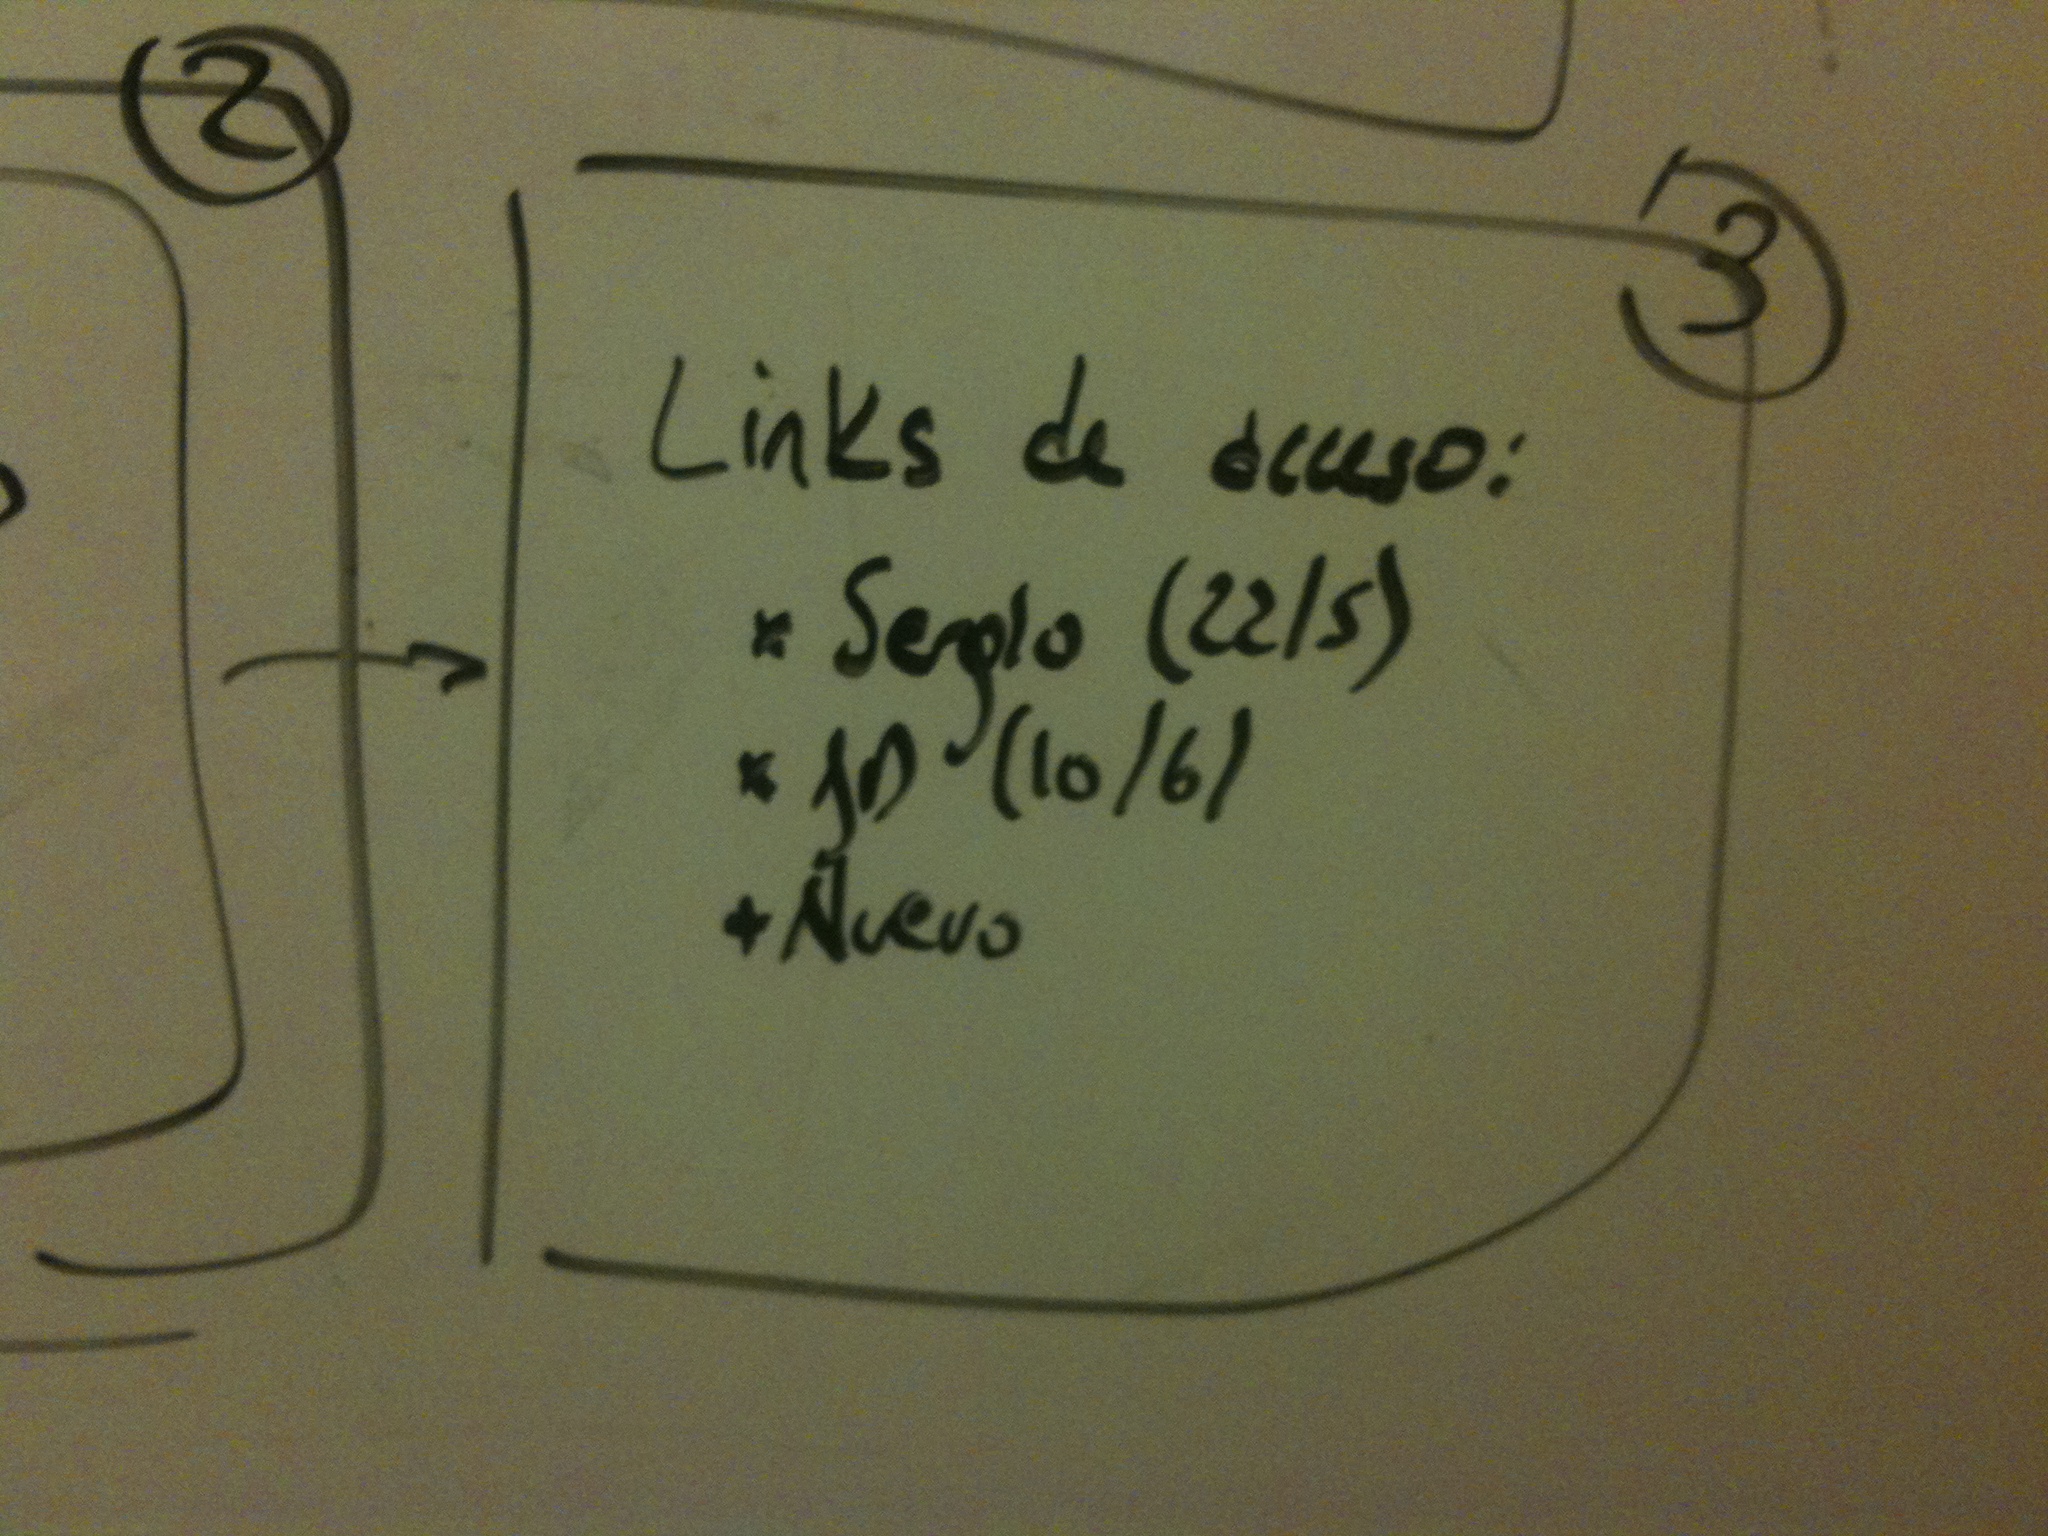 2
3
Links de acceso:
* Sergio (22/5)
* JD (10/6)
+ Nuevo